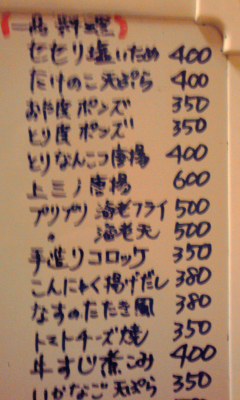 一品料理
セセリ塩いため 400
たけのこ天ぷら 400
おや皮ポンズ 350
とり皮ポンズ 350
とりなんこつ唐揚 400
上ミノ唐揚 600
プリプリ海老フライ 500
〃 海老天 500
手造りコロッケ 350
こんにゃく揚げだし 380
なすのたたき風 380
トマトチーズ焼 350
牛すじ煮こみ 400
いかなご天ぷら 350